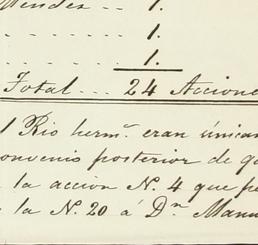 Mendez . . 1.
. . . . . . . 1.
. . . . . . 1.
Total . . . 24 Accione
l Rio herm.ˢ eran únicam
convenio posterior de q
la acción N. 4 que p
la N. 20 á D.ⁿ Manu